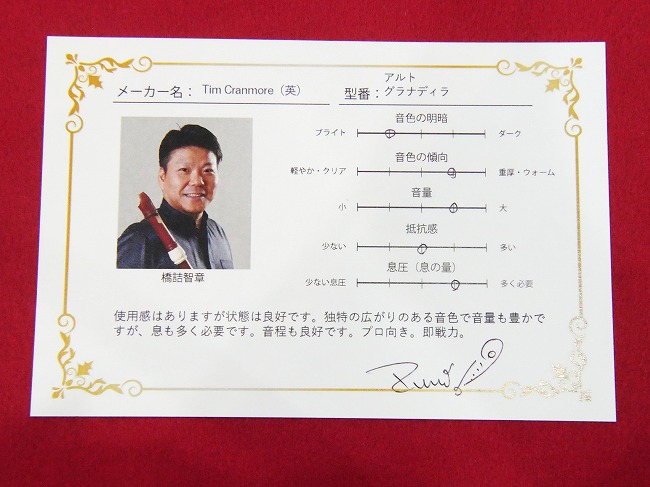 メーカー名： Tim Cranmore（英）
アルト
型番： グラナディラ
音色の明暗
ブライト ダーク
音色の傾向
軽やか・クリア 重厚・ウォーム
音量
小 大
抵抗感
少ない 多い
息圧（息の量）
少ない息圧 多く必要
橋詰智章
使用感はありますが状態は良好です。独特の広がりのある音色で音量も豊かで
すが、息も多く必要です。音程も良好です。プロ向き。即戦力。